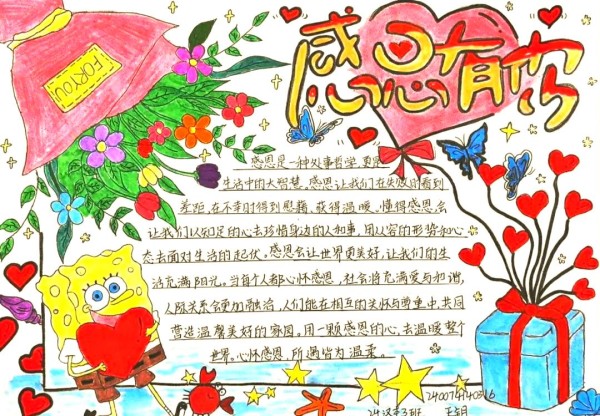 感恩有你
FOR YOU
感恩是一种处事哲学,更是
生活中的大智慧。感恩让我们在失败时看到
差距,在不幸时得到慰藉,获得温暖。懂得感恩会
让我们以知足的心去珍惜身边的人和事,用从容的形势和心
态去面对生活的起伏。感恩会让世界更美好,让我们的生
活充满阳光。当每个人都心怀感恩,社会将充满爱与和谐,
人际关系会更加融洽,人们能在相互的关怀与尊重中,共同
营造温馨美好的氛围。用一颗感恩的心,去温暖整个
世界。心怀感恩,所遇皆为温柔。